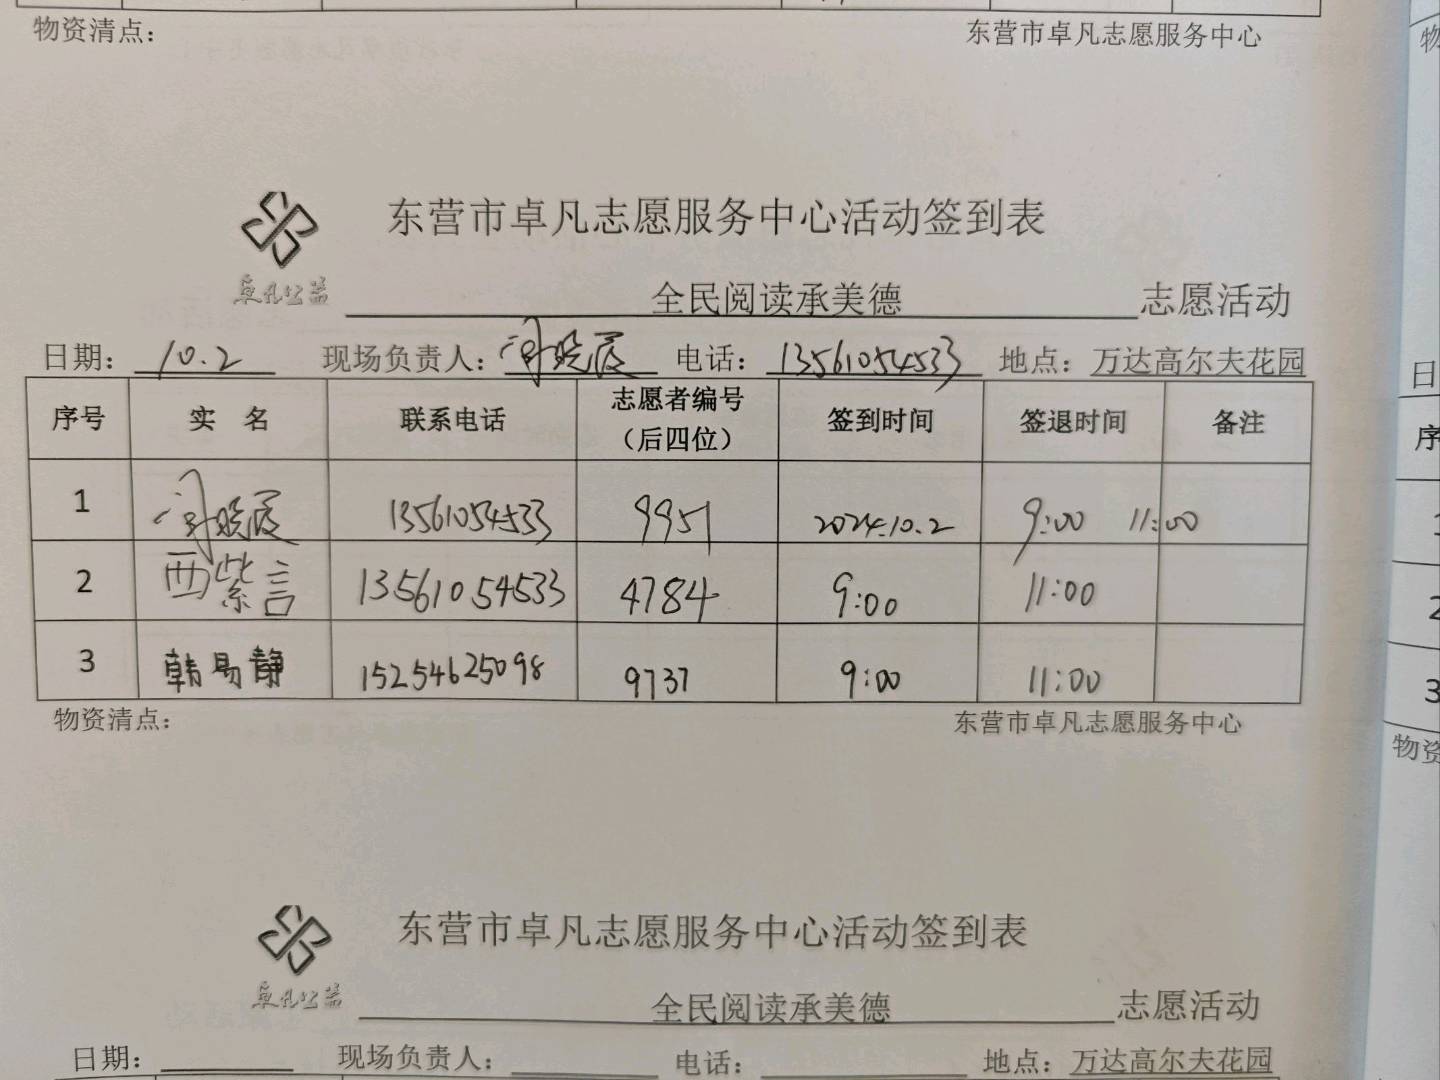 物资清点：
东营市卓凡志愿服务中心
东营市卓凡志愿服务中心活动签到表
卓凡公益
全民阅读承美德 志愿活动
日期： 10.2 现场负责人： 晓霞 电话： 13561054533 地点： 万达高尔夫花园
序号 实 名 联系电话 志愿者编号（后四位） 签到时间 签退时间 备注
1 晓霞 13561054533 9951 2024.10.2 9:00 11:00
2 西紫言 13561054533 4784 9:00 11:00
3 韩易静 15254625098 9737 9:00 11:00
物资清点：
东营市卓凡志愿服务中心
东营市卓凡志愿服务中心活动签到表
卓凡公益
全民阅读承美德 志愿活动
日期： 现场负责人： 电话： 地点： 万达高尔夫花园
物
日
序
2
3
物资